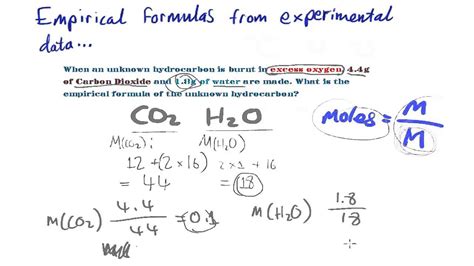 Empirical formulas from experimental
data...
When an unknown hydrocarbon is burnt in excess oxygen, 4.4g
of Carbon Dioxide and 1.8g of water are made. What is the
empirical formula of the unknown hydrocarbon?
CO2 H2O
M(CO2): M(H2O)
12 + (2 × 16) 2 × 1 + 16
= 44 = 18
Moles = M/M
M(CO2) 4.4/44 = 0.1 M(H2O) 1.8/18